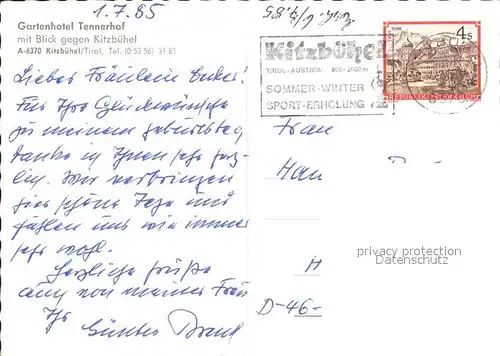 1.7.85
Gartenhotel Tennerhof
mit Blick gegen Kitzbühel
A-6370 Kitzbühel/Tirol, Tel. (0 53 56) 31 81
Liebes Fräulein
Für Ihre Glückwünsche
zu meinem Geburtstag
danke ich Ihnen sehr herz-
lich. Wir verbringen
hier schöne Tage und
fühlen uns wie immer
sehr wohl.
Herzliche Grüße
auch von meiner Frau
Ihr
Günter
Kitzbühel
TIROL-AUSTRIA
SOMMER-WINTER
SPORT-ERHOLUNG
4 S
REPUBLIK ÖSTERREICH
Frau
Han
H
D-46-
privacy protection
Datenschutz